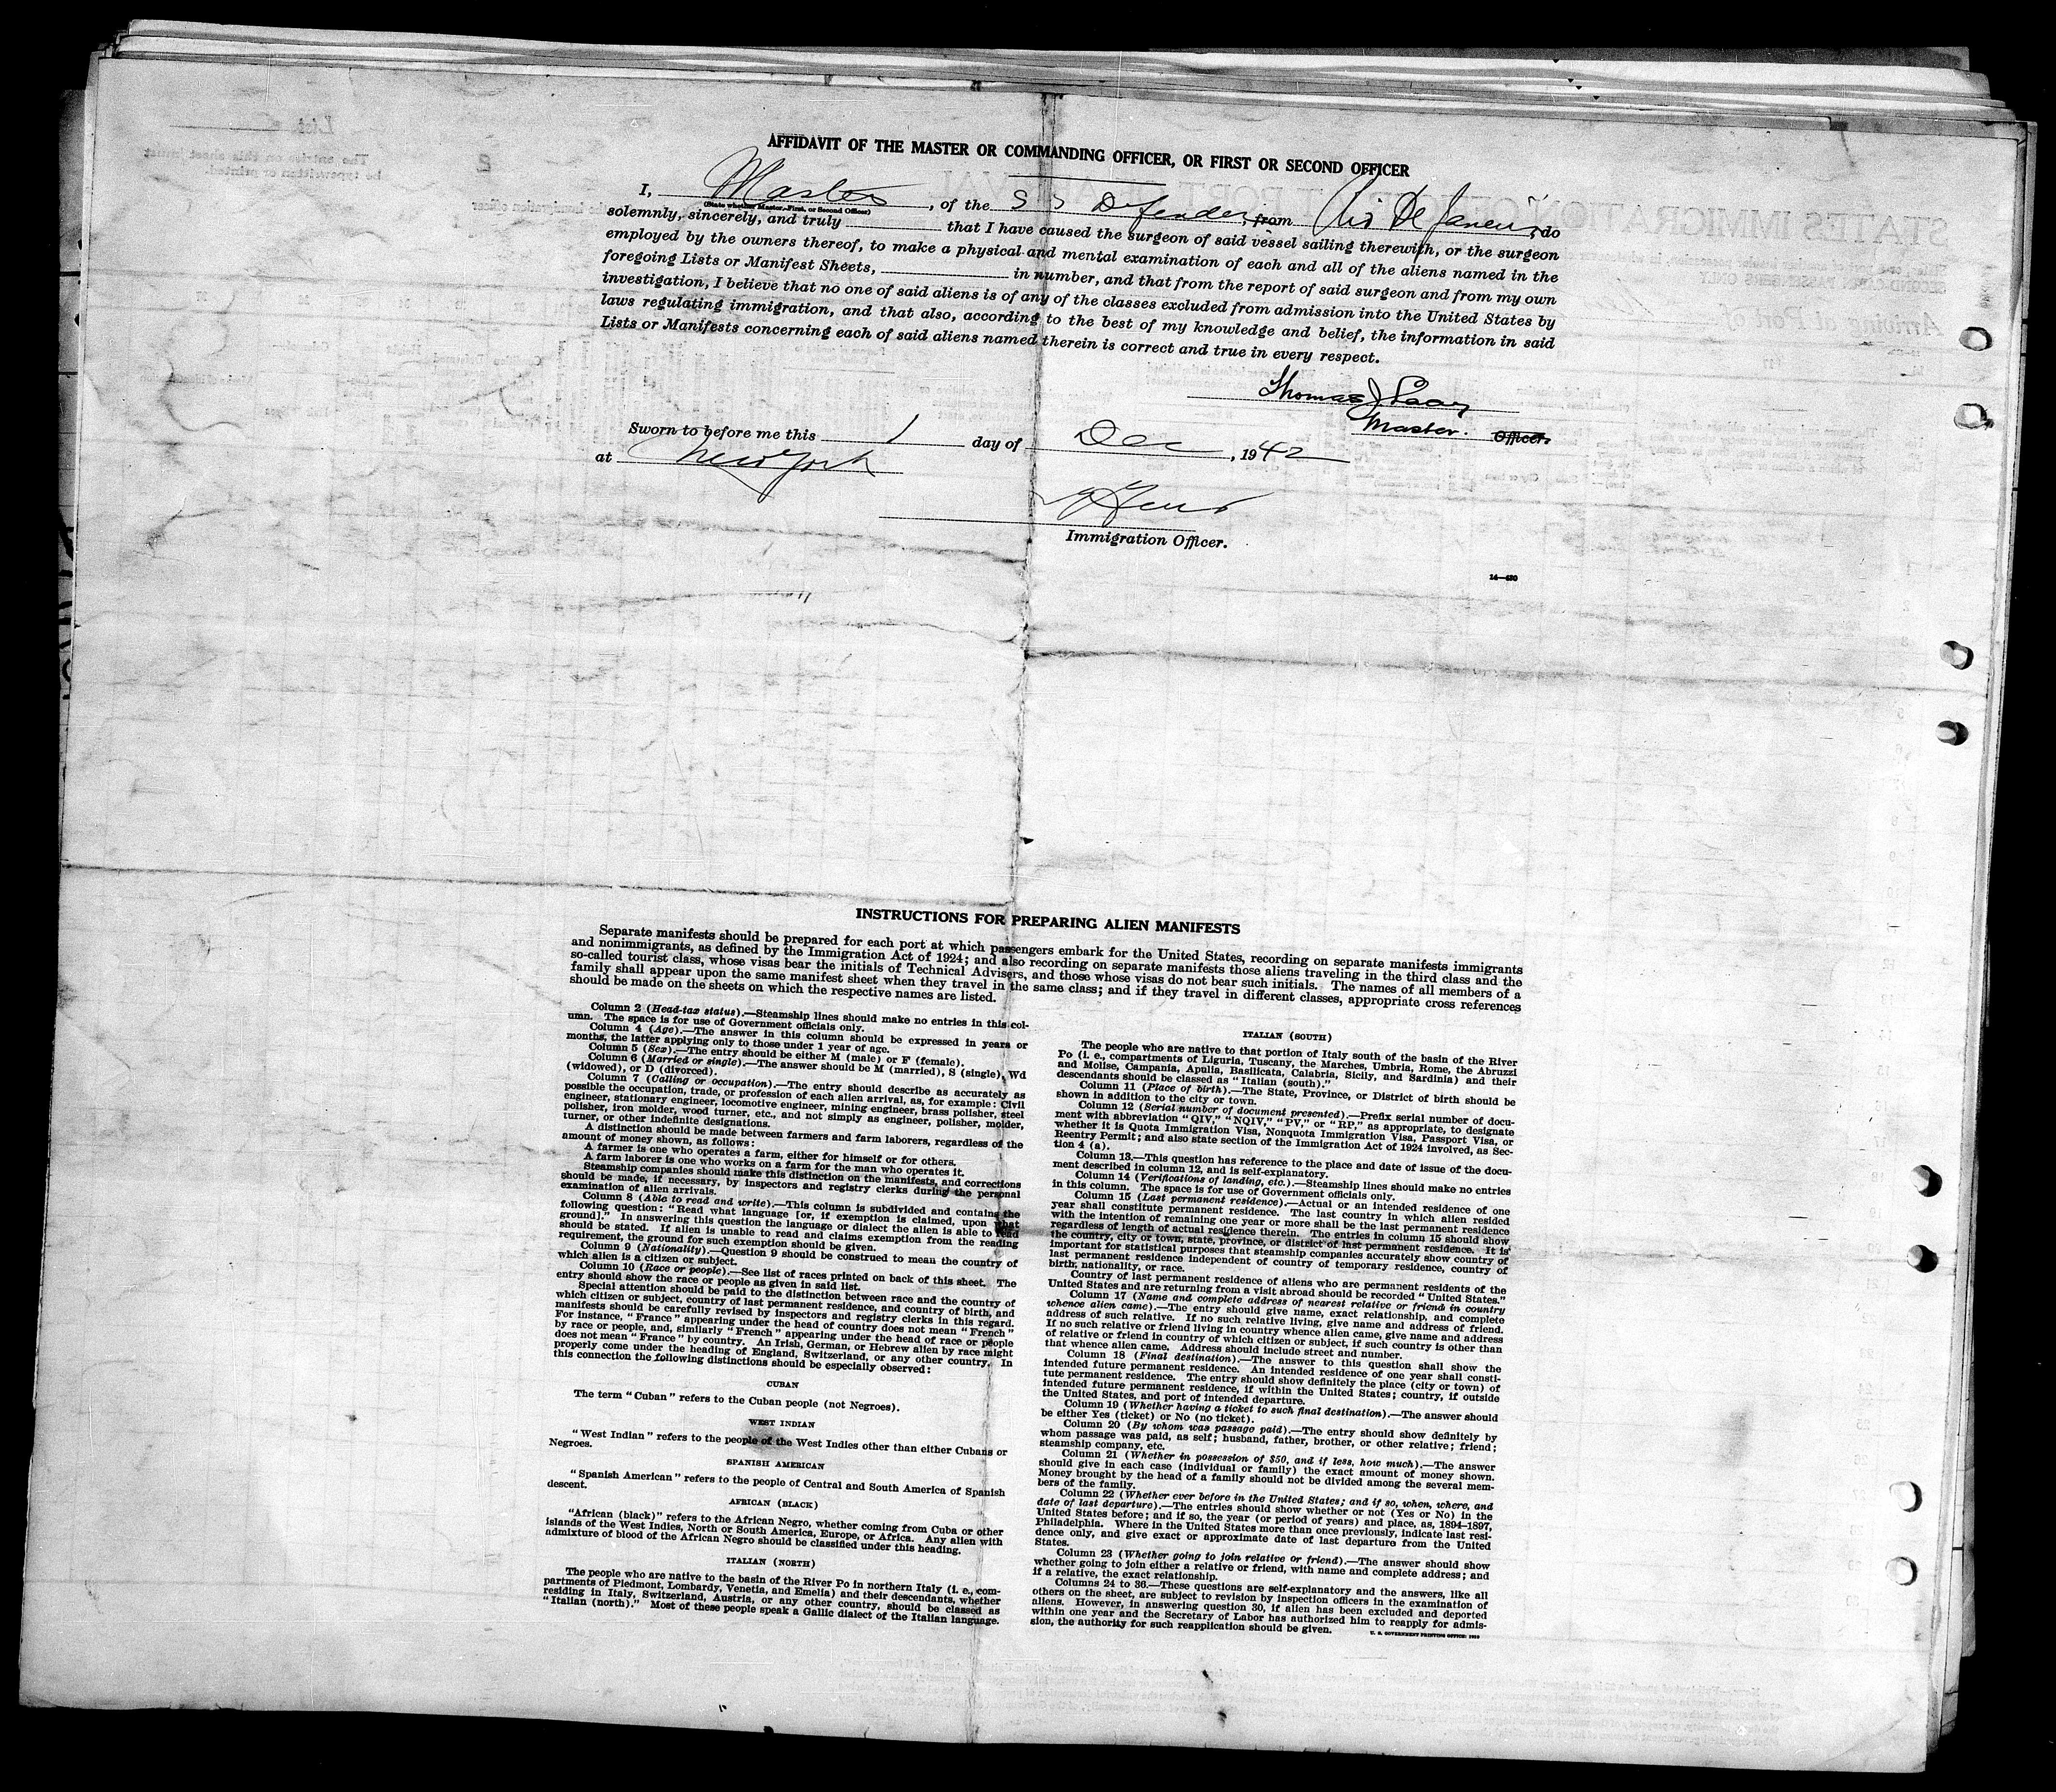 AFFIDAVIT OF THE MASTER OR COMMANDING OFFICER, OR FIRST OR SECOND OFFICER
I, Master, of the S S Defender, from Rio De Janeiro, do
(State whether Master, First, or Second Officer)
solemnly, sincerely, and truly that I have caused the surgeon of said vessel sailing therewith, or the surgeon
employed by the owners thereof, to make a physical and mental examination of each and all of the aliens named in the
foregoing Lists or Manifest Sheets, in number, and that from the report of said surgeon and from my own
investigation, I believe that no one of said aliens is of any of the classes excluded from admission into the United States by
laws regulating immigration, and that also, according to the best of my knowledge and belief, the information in said
Lists or Manifests concerning each of said aliens named therein is correct and true in every respect.
Thomas J
Master. Officer.
Sworn to before me this 1 day of Dec, 1942
at New York
Immigration Officer.
14—430
INSTRUCTIONS FOR PREPARING ALIEN MANIFESTS
Separate manifests should be prepared for each port at which passengers embark for the United States, recording on separate manifests immigrants
and nonimmigrants, as defined by the Immigration Act of 1924; and also recording on separate manifests those aliens traveling in the third class and the
so-called tourist class, whose visas bear the initials of Technical Advisers, and those whose visas do not bear such initials. The names of all members of a
family shall appear upon the same manifest sheet when they travel in the same class; and if they travel in different classes, appropriate cross references
should be made on the sheets on which the respective names are listed.
Column 2 (Head-tax status).—Steamship lines should make no entries in this col-
umn. The space is for use of Government officials only.
Column 4 (Age).—The answer in this column should be expressed in years or
months, the latter applying only to those under 1 year of age.
Column 5 (Sex).—The entry should be either M (male) or F (female).
Column 6 (Married or single).—The answer should be M (married), S (single), Wd
(widowed), or D (divorced).
Column 7 (Calling or occupation).—The entry should describe as accurately as
possible the occupation, trade, or profession of each alien arrival, as, for example: Civil
engineer, stationary engineer, locomotive engineer, mining engineer, brass polisher, steel
polisher, iron molder, wood turner, etc., and not simply as engineer, polisher, molder,
turner, or other indefinite designations.
A distinction should be made between farmers and farm laborers, regardless of the
amount of money shown, as follows:
A farmer is one who operates a farm, either for himself or for others.
A farm laborer is one who works on a farm for the man who operates it.
Steamship companies should make this distinction on the manifests, and corrections
should be made, if necessary, by inspectors and registry clerks during the personal
examination of alien arrivals.
Column 8 (Able to read and write).—This column is subdivided and contains the
following question: "Read what language [or, if exemption is claimed, upon what
ground]." In answering this question the language or dialect the alien is able to read
should be stated. If alien is unable to read and claims exemption from the reading
requirement, the ground for such exemption should be given.
Column 9 (Nationality).—Question 9 should be construed to mean the country of
which alien is a citizen or subject.
Column 10 (Race or people).—See list of races printed on back of this sheet. The
entry should show the race or people as given in said list.
Special attention should be paid to the distinction between race and the country of
which citizen or subject, country of last permanent residence, and country of birth, and
manifests should be carefully revised by inspectors and registry clerks in this regard.
For instance, "France" appearing under the head of country does not mean "French"
by race or people, and, similarly "French" appearing under the head of race or people
does not mean "France" by country. An Irish, German, or Hebrew alien by race might
properly come under the heading of England, Switzerland, or any other country. In
this connection the following distinctions should be especially observed:
CUBAN
The term "Cuban" refers to the Cuban people (not Negroes).
WEST INDIAN
"West Indian" refers to the people of the West Indies other than either Cubans or
Negroes.
SPANISH AMERICAN
"Spanish American" refers to the people of Central and South America of Spanish
descent.
AFRICAN (BLACK)
"African (black)" refers to the African Negro, whether coming from Cuba or other
islands of the West Indies, North or South America, Europe, or Africa. Any alien with
admixture of blood of the African Negro should be classified under this heading.
ITALIAN (NORTH)
The people who are native to the basin of the River Po in northern Italy (i. e., com-
partments of Piedmont, Lombardy, Venetia, and Emelia) and their descendants, whether
residing in Italy, Switzerland, Austria, or any other country, should be classed as
"Italian (north)." Most of these people speak a Gallic dialect of the Italian language.
ITALIAN (SOUTH)
The people who are native to that portion of Italy south of the basin of the River
Po (i. e., compartments of Liguria, Tuscany, the Marches, Umbria, Rome, the Abruzzi
and Molise, Campania, Apulia, Basilicata, Calabria, Sicily, and Sardinia) and their
descendants should be classed as "Italian (south)."
Column 11 (Place of birth).—The State, Province, or District of birth should be
shown in addition to the city or town.
Column 12 (Serial number of document presented).—Prefix serial number of docu-
ment with abbreviation "QIV," "NQIV," "PV," or "RP," as appropriate, to designate
whether it is Quota Immigration Visa, Nonquota Immigration Visa, Passport Visa, or
Reentry Permit; and also state section of the Immigration Act of 1924 involved, as Sec-
tion 4 (a).
Column 13.—This question has reference to the place and date of issue of the docu-
ment described in column 12, and is self-explanatory.
Column 14 (Verifications of landing, etc.).—Steamship lines should make no entries
in this column. The space is for use of Government officials only.
Column 15 (Last permanent residence).—Actual or an intended residence of one
year shall constitute permanent residence. The last country in which alien resided
with the intention of remaining one year or more shall be the last permanent residence
regardless of length of actual residence therein. The entries in column 15 should show
the country, city or town, state, province, or district of last permanent residence. It is
important for statistical purposes that steamship companies accurately show country of
last permanent residence independent of country of temporary residence, country of
birth, nationality, or race.
Country of last permanent residence of aliens who are permanent residents of the
United States and are returning from a visit abroad should be recorded "United States."
Column 17 (Name and complete address of nearest relative or friend in country
whence alien came).—The entry should give name, exact relationship, and complete
address of such relative. If no such relative living, give name and address of friend.
If no such relative or friend living in country whence alien came, give name and address
of relative or friend in country of which citizen or subject, if such country is other than
that whence alien came. Address should include street and number.
Column 18 (Final destination).—The answer to this question shall show the
intended future permanent residence. An intended residence of one year shall consti-
tute permanent residence. The entry should show definitely the place (city or town) of
intended future permanent residence, if within the United States; country, if outside
the United States, and port of intended departure.
Column 19 (Whether having a ticket to such final destination).—The answer should
be either Yes (ticket) or No (no ticket).
Column 20 (By whom was passage paid).—The entry should show definitely by
whom passage was paid, as self; husband, father, brother, or other relative; friend;
steamship company, etc.
Column 21 (Whether in possession of $50, and if less, how much).—The answer
should give in each case (individual or family) the exact amount of money shown.
Money brought by the head of a family should not be divided among the several mem-
bers of the family.
Column 22 (Whether ever before in the United States; and if so, when, where, and
date of last departure).—The entries should show whether or not (Yes or No) in the
United States before; and if so, the year (or period of years) and place, as, 1894–1897,
Philadelphia. Where in the United States more than once previously, indicate last resi-
dence only, and give exact or approximate date of last departure from the United
States.
Column 23 (Whether going to join relative or friend).—The answer should show
whether going to join either a relative or friend, with name and complete address; and
if a relative, the exact relationship.
Columns 24 to 36.—These questions are self-explanatory and the answers, like all
others on the sheet, are subject to revision by inspection officers in the examination of
aliens. However, in answering question 30, if alien has been excluded and deported
within one year and the Secretary of Labor has authorized him to reapply for admis-
sion, the authority for such reapplication should be given.
U. S. GOVERNMENT PRINTING OFFICE